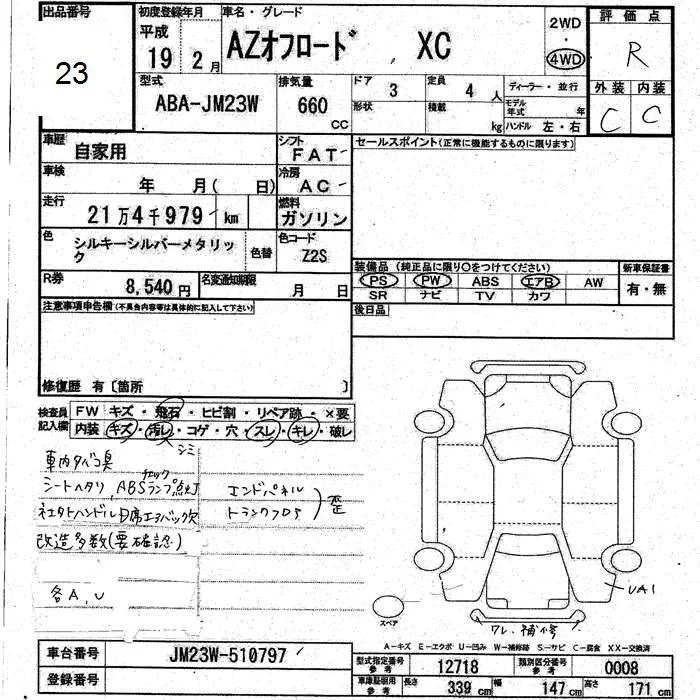 出品番号
23
初度登録年月
平成
19 2月
車名・グレード
AZオフロード XC
2WD
・
4WD
評価点
R
外装 内装
C C
型式
ABA-JM23W
排気量
660
CC
ドア 3
形状
定員 4 人
積載 kg
ディーラー・並行
モデル年式 年
ハンドル 左・右
車歴
自家用
シフト
FAT
セールスポイント(正常に機能するものに限ります)
車検
年 月( 日)
冷房
AC
走行
21万4千979 km
燃料
ガソリン
色
シルキーシルバーメタリック
色替
色コード
Z2S
R券
8,540円
名変通知期限
月 日
装備品(純正品に限り○をつけてください)
PS PW ABS エアB AW
SR ナビ TV カワ
新車保証書
有・無
後日品
注意事項申告欄(不具合内容等は具体的に記入して下さい)
修復歴 有〔箇所 〕
検査員記入欄
FW キズ・飛石・ヒビ割・リペア跡・×要
内装 キズ・汚レ・コゲ・穴・スレ・キレ・破レ
シミ
車内タバコ臭
シートヘタリ、ABSランプ点灯
チェック
エンドパネル
トランクフロア
歪
社外ハンドル D席エアバック欠
改造多数(要確認)
各A,U
スペア
UA1
ワレ、補修
A-キズ E-エクボ U-凹み W-補修跡 S-サビ C-腐食 XX-交換済
車台番号
JM23W-510797
登録番号
型式指定番号
参考
12718
類別区分番号
参考
0008
車庫証明用
参考
長さ 339cm 幅 147cm 高さ 171cm